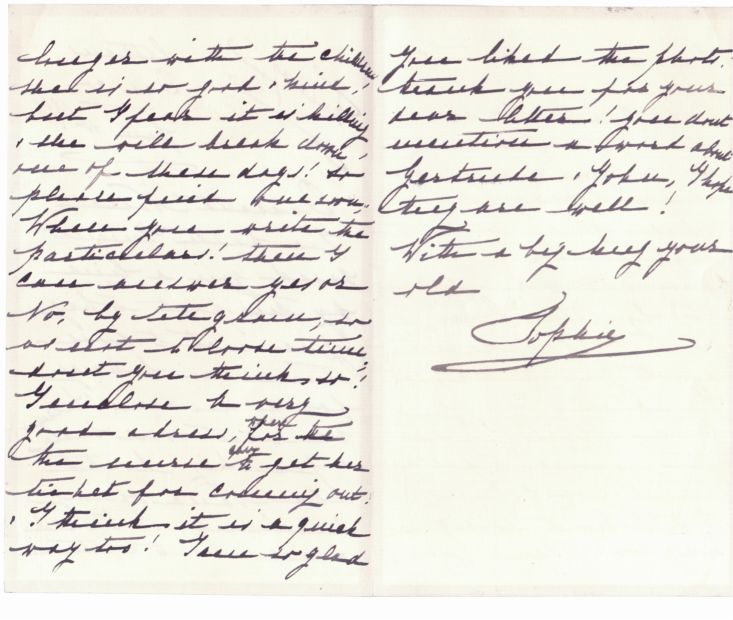 longer with the children
she is so good & kind,
but I fear it is killing
& she will break down,
one of these days! so
please find one soon,
When you write the
particulars! then I
can answer yes or
No, by telegram, so
as not to loose time,
dont you think so?!
I enclose a very
good adress, where
for the
the nurse can
to get her
ticket for coming out!
& I think it is a quick
way too! I am so glad
you liked the photo.
thank you for your
dear letter! you dont
mention a word about
Gertrude & John, I hope
they are well!
With a big hug your
old
Sophie